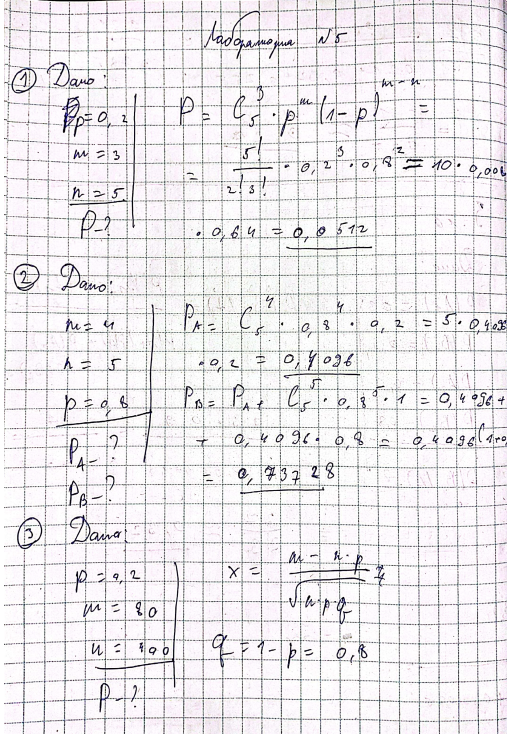 Лабораторна №5
① Дано:
p = 0,2
m = 3
n = 5
P - ?
P = C₅³ · pᵐ (1-p)ᵐ⁻ⁿ =
= 5!/2!3! · 0,2³ · 0,8² = 10 · 0,008
· 0,64 = 0,0512
② Дано:
m = 4
n = 5
p = 0,8
P_A - ?
P_B - ?
P_A = C₅⁴ · 0,8⁴ · 0,2 = 5 · 0,4096
· 0,2 = 0,4096
P_B = P_A + C₅⁵ · 0,8⁵ · 1 = 0,4096 +
+ 0,4096 · 0,8 = 0,4096(1+0,
= 0,73728
③ Дано:
p = 0,2
m = 80
n = 400
P - ?
x = m - n·p / √n·p·q
q = 1 - p = 0,8